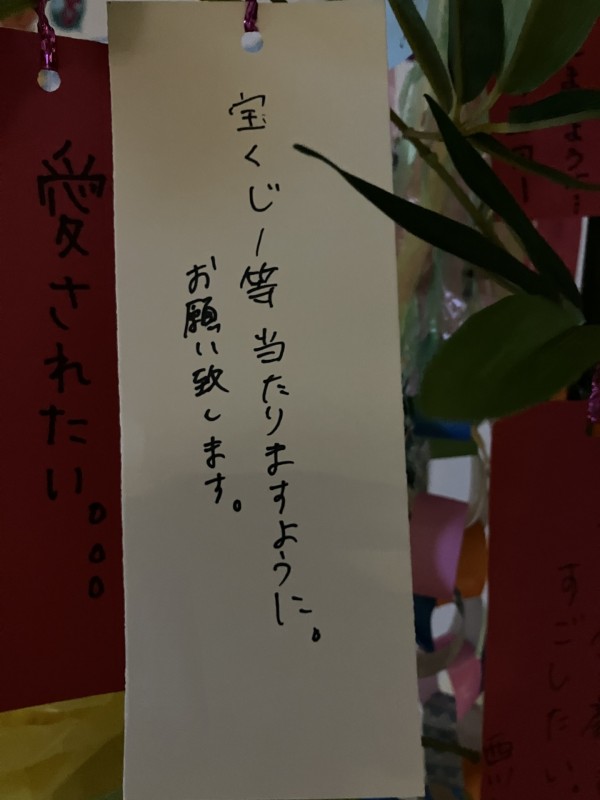 宝くじ1等当たりますように。
お願い致します。
愛されたい。。。
すごしたい。